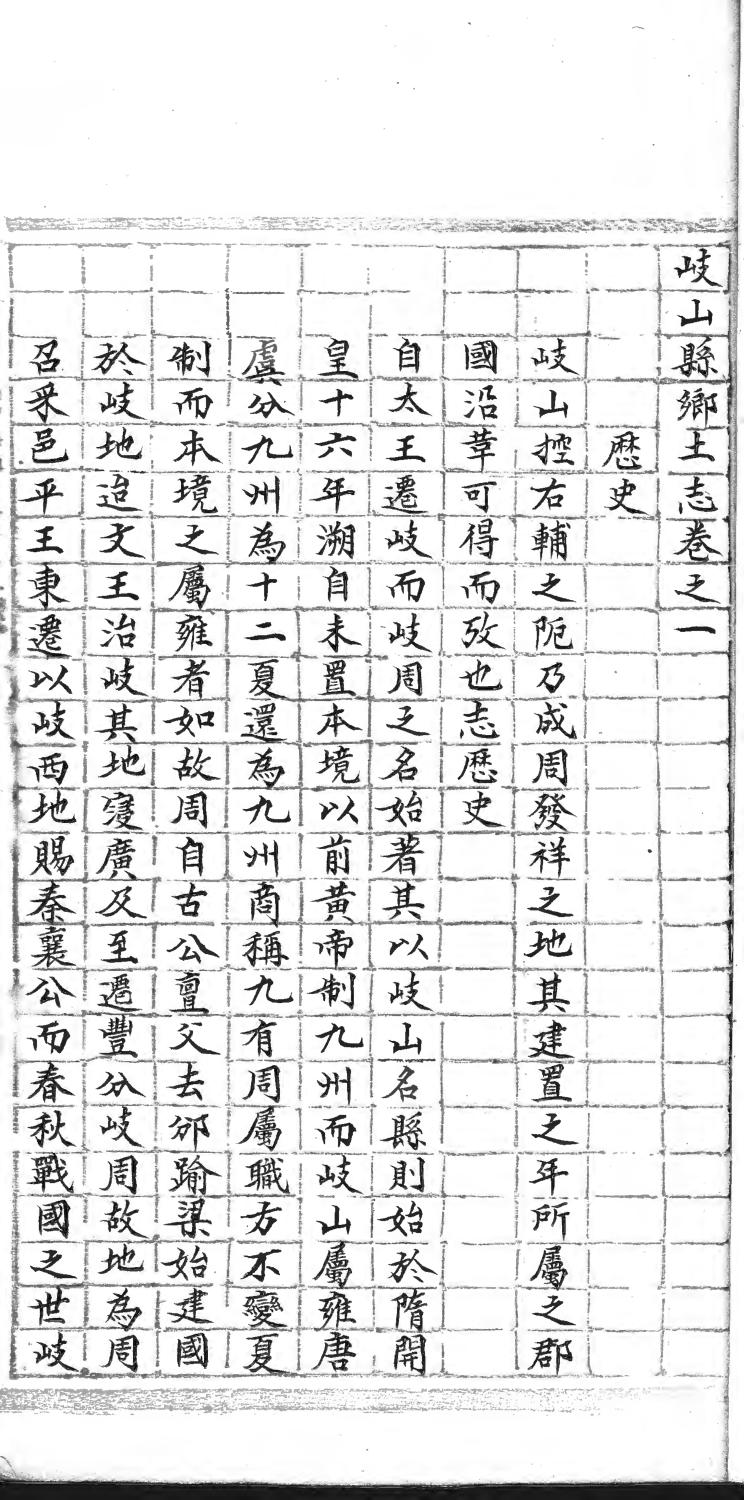 岐山縣鄉土志卷之一
歷史
岐山控右輔之阨乃成周發祥之地其建置之年所屬之郡
國沿革可得而攷也志歷史
自太王遷岐而岐周之名始著其以岐山名縣則始於隋開
皇十六年溯自未置本境以前黃帝制九州而岐山屬雍唐
虞分九州為十二夏還為九州商稱九有周屬職方不變夏
制而本境之屬雍者如故周自古公亶父去邠踰梁始建國
於岐地迨文王治岐其地寖廣及至遷豐分岐周故地為周
召采邑平王東遷以岐西地賜秦襄公而春秋戰國之世岐